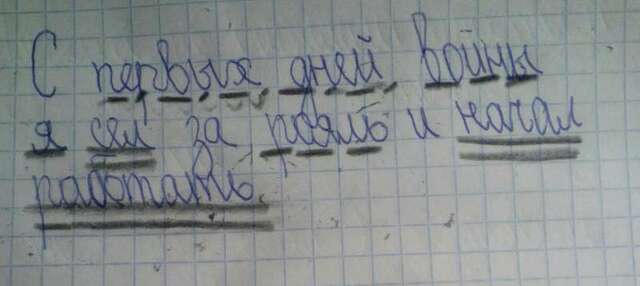 С первых дней войны
я сел за рояль и начал
работать.